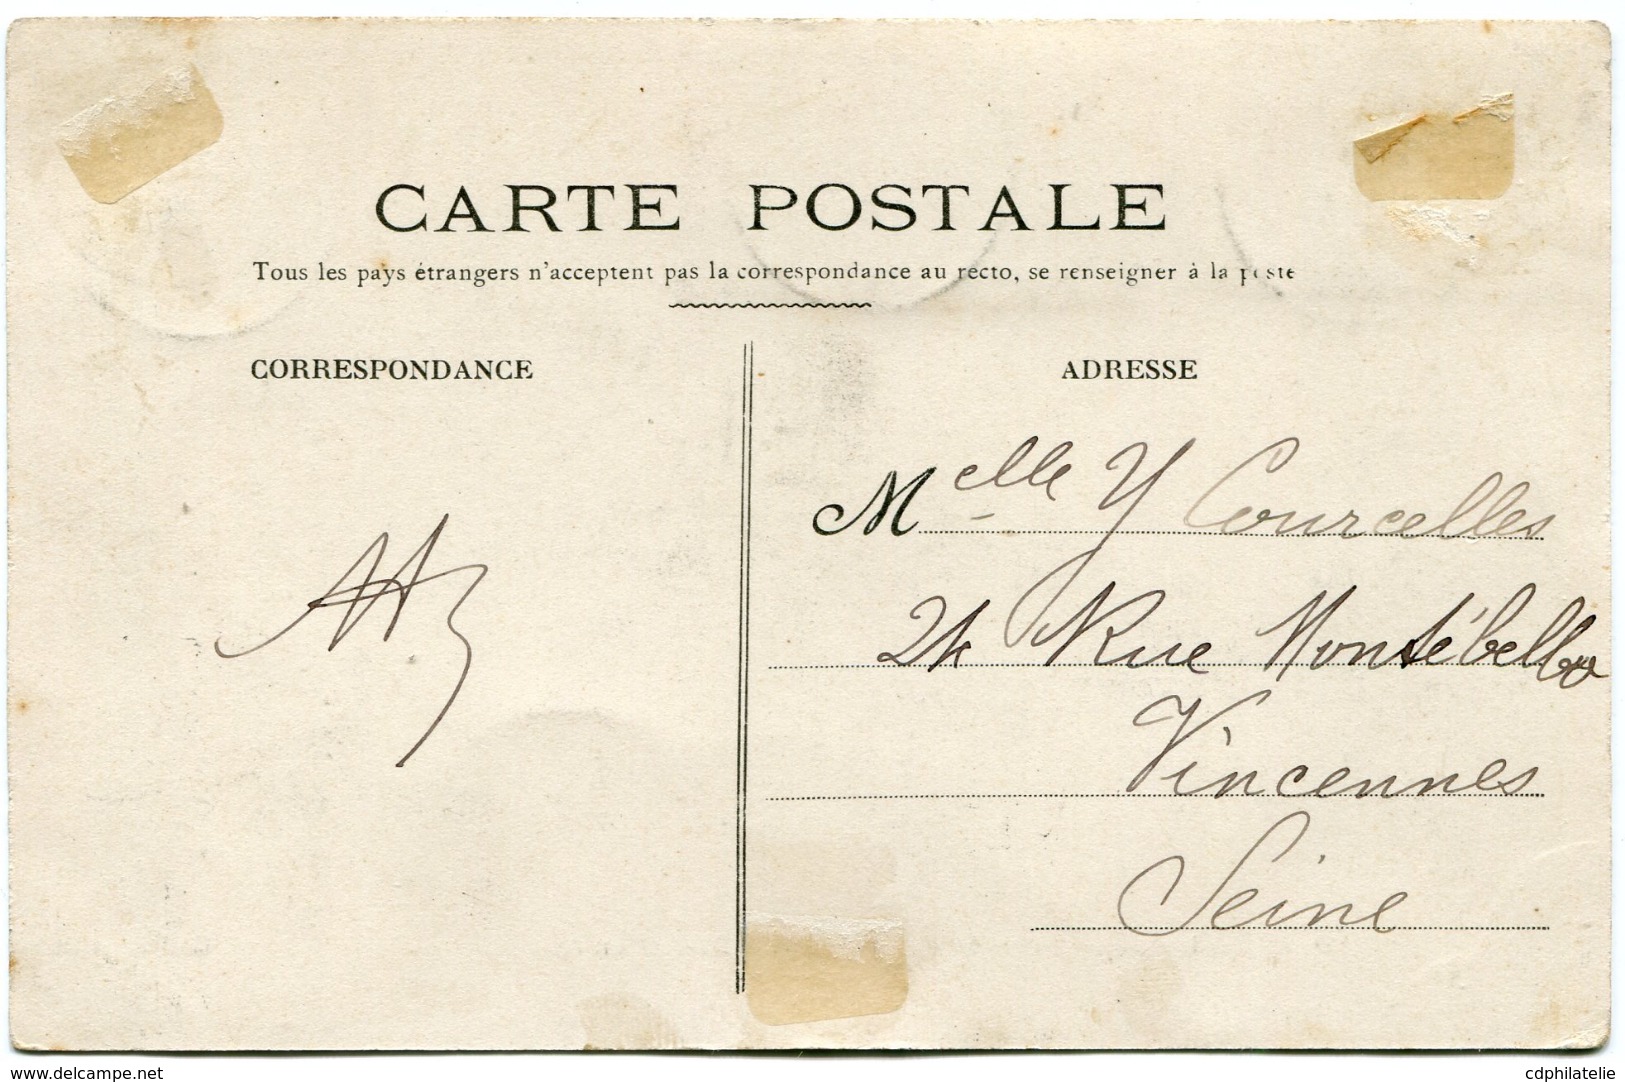 CARTE POSTALE
Tous les pays étrangers n'acceptent pas la correspondance au recto, se renseigner à la poste
CORRESPONDANCE
ADRESSE
Melle Y Courcelles
24 Rue Montébello
Vincennes
Seine
www.delcampe.net
cdphilatelie